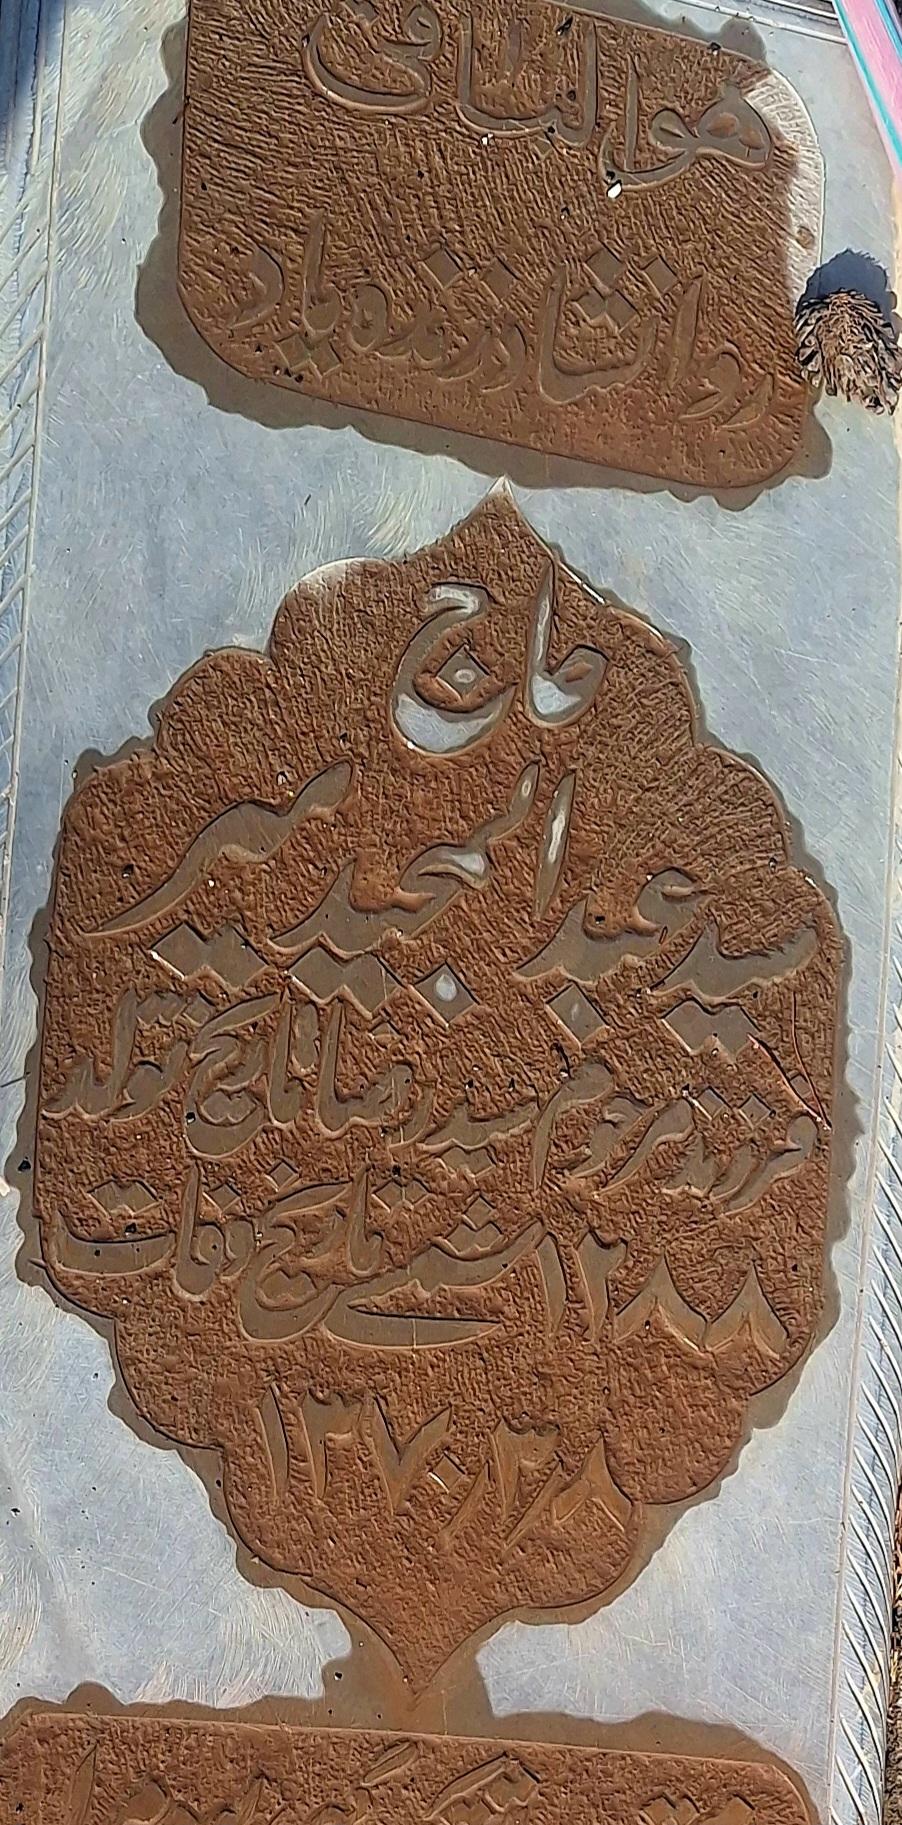 هوالباقی
روانشادزنده یاد
حاج
سید عبدالمجید میر
فرزند مرحوم سیدرضا تاریخ تولد
۱۲۸۸ شمسی تاریخ وفات
۱۳۷۰٫۳٫۸